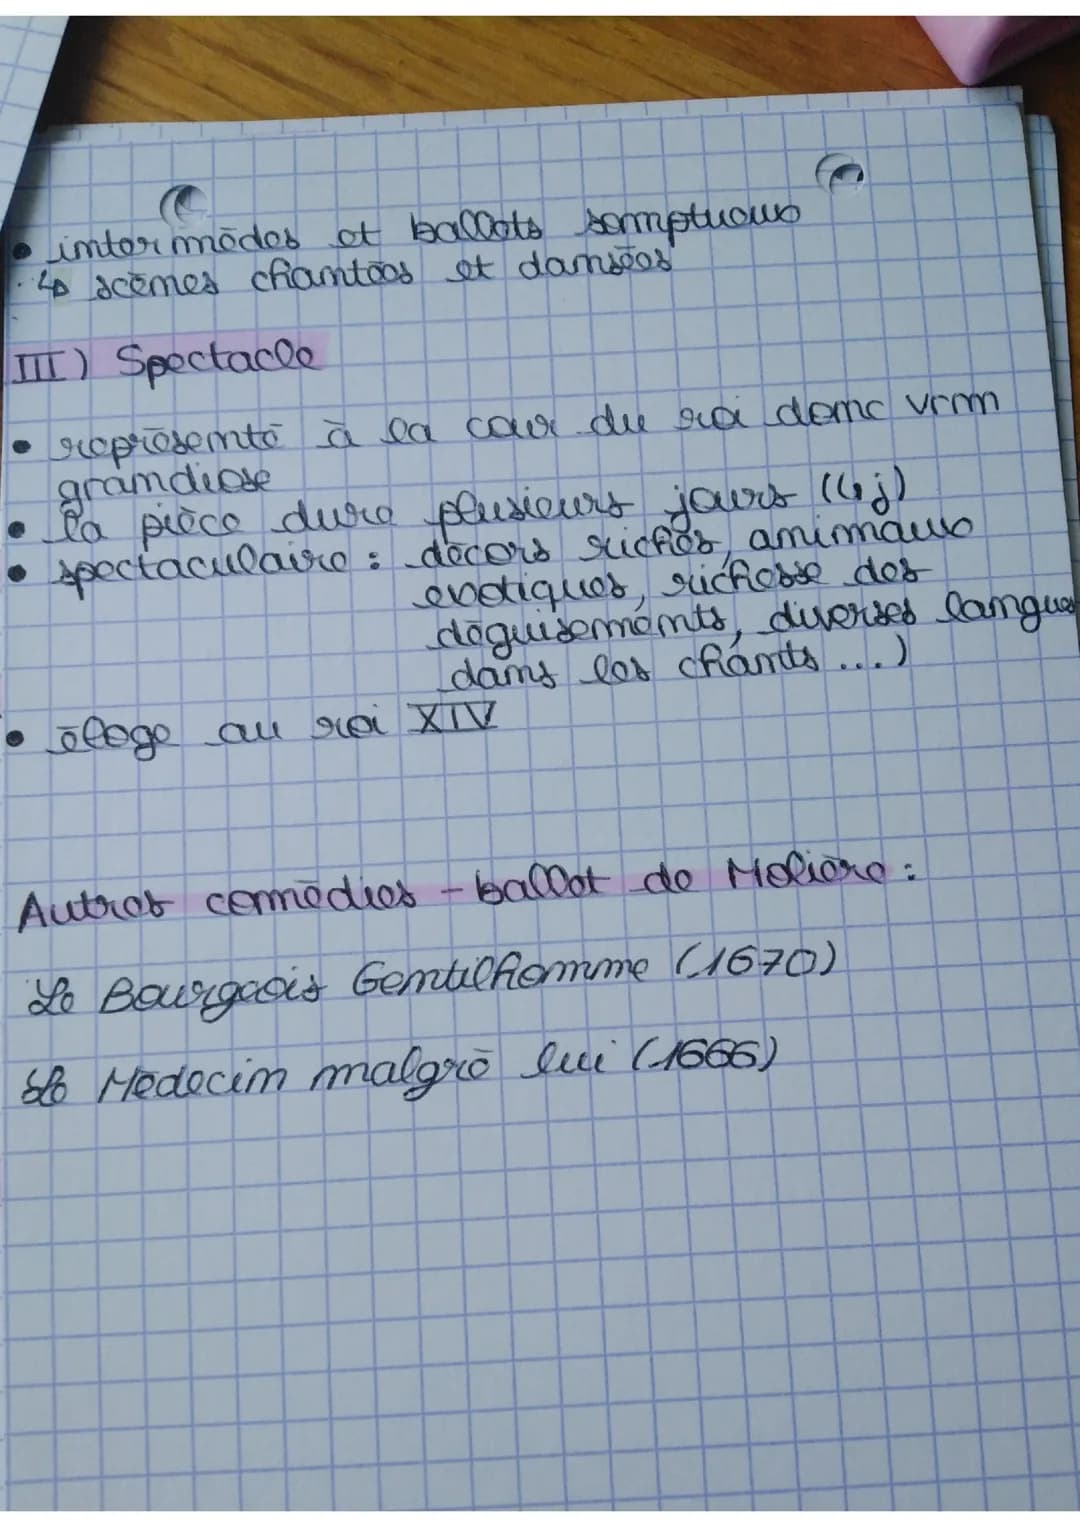 • intermèdes et ballets somptueux
↳ scènes chantées et dansées
III) Spectacle
• représenté à la cour du roi donc vrm
grandiose
• la pièce dure plusieurs jours (4j)
• spectaculaire : décors riches, animaux
exotiques, richesse des
déguisements, diverses langues
dans les chants ...)
• éloge au roi XIV
Autres comédies - ballet de Molière :
Le Bourgeois Gentilhomme (1670)
Le Médecin malgré lui (1666)